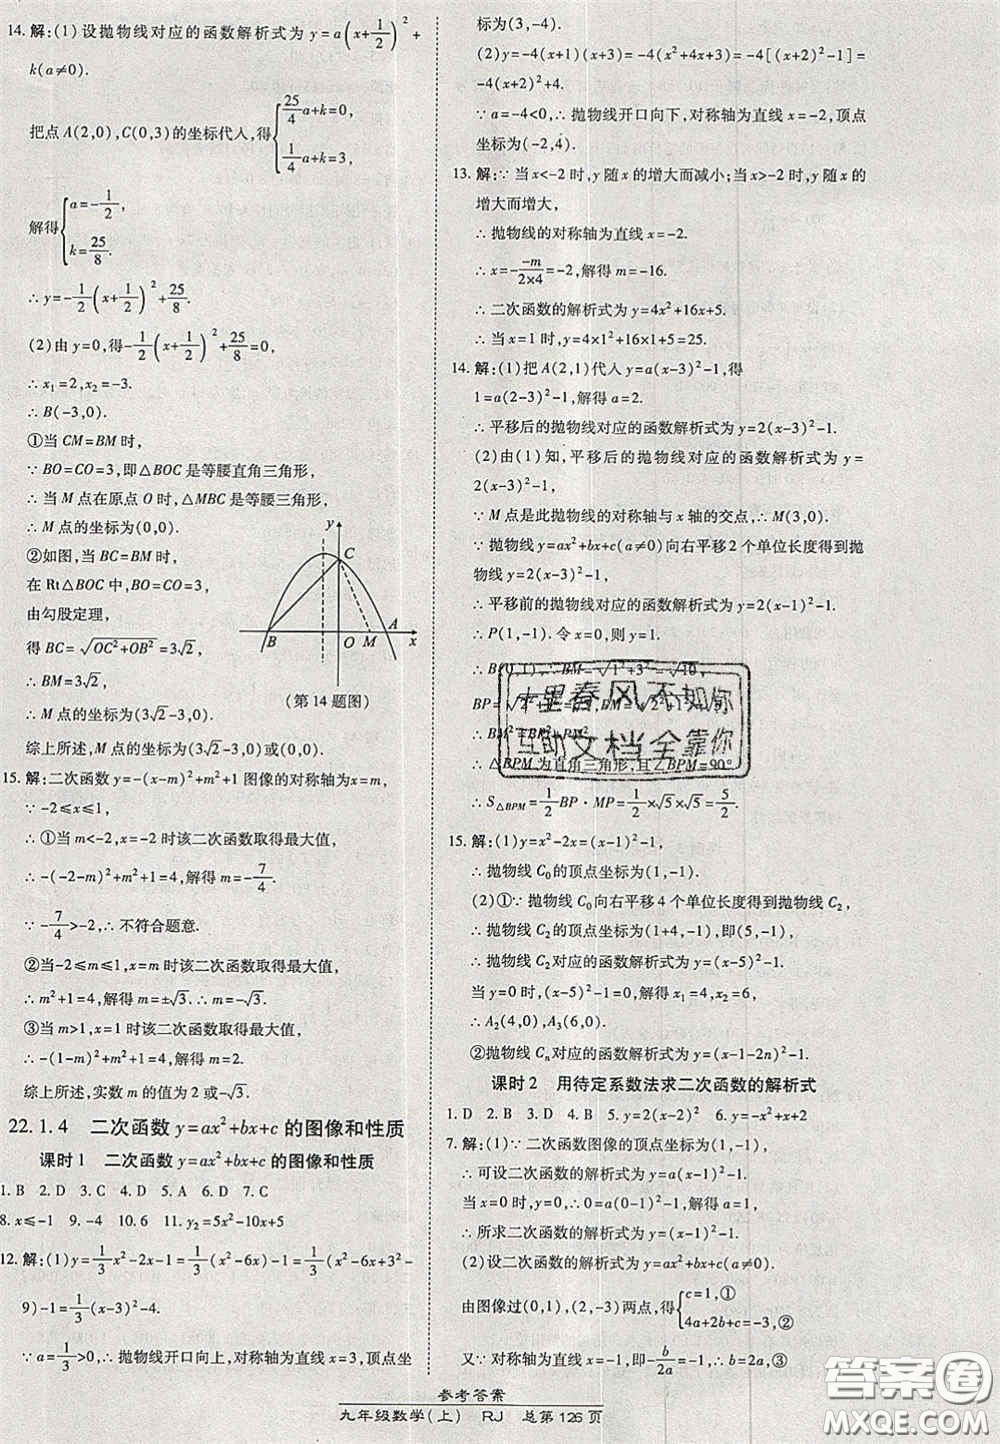 14. 解:(1)设抛物线对应的函数解析式为 y=a(x+1/2)²+
k(a≠0).
把点A(2,0),C(0,3)的坐标代人,得{25/4 a+k=0,
1/4 a+k=3,
解得{a=-1/2,
k=25/8.
∴ y=-1/2(x+1/2)²+25/8.
(2)由 y=0,得-1/2(x+1/2)²+25/8=0,
∴ x₁=2,x₂=-3.
∴ B(-3,0).
①当 CM=BM 时,
∵ BO=CO=3,即△BOC 是等腰直角三角形,
∴ 当 M 点在原点 O 时,△MBC 是等腰三角形,
∴ M 点的坐标为(0,0).
②如图,当 BC=BM 时,
在 Rt△BOC 中,BO=CO=3,
由勾股定理,
得 BC=√(OC²+OB²)=3√2,
∴ BM=3√2,
∴ M 点的坐标为(3√2-3,0).
y
C
B
O
M
A
x
(第 14 题图)
综上所述,M 点的坐标为(3√2-3,0)或(0,0).
15. 解:二次函数 y=-(x-m)²+m²+1 图像的对称轴为x=m,
∵ -2≤x≤1,
∴ ①当 m<-2,x=-2 时该二次函数取得最大值,
∴ -(-2-m)²+m²+1=4,解得 m=-7/4.
∵ -7/4>-2,∴ 不符合题意.
②当-2≤m≤1,x=m 时该二次函数取得最大值,
∴ m²+1=4,解得 m=±√3.∴ m=-√3.
③当 m>1,x=1 时该二次函数取得最大值,
∴ -(1-m)²+m²+1=4,解得 m=2.
综上所述,实数 m 的值为 2 或-√3.
22.1.4 二次函数 y=ax²+bx+c 的图像和性质
课时1 二次函数 y=ax²+bx+c 的图像和性质
1. B 2. D 3. C 4. D 5. A 6. D 7. C
8. x≤-1 9. -4 10. 6 11. y₂=5x²-10x+5
12. 解:(1)y=1/3x²-2x-1=1/3(x²-6x)-1=1/3(x²-6x+3²-
9)-1=1/3(x-3)²-4.
∵ a=1/3>0,∴ 抛物线开口向上,对称轴为直线 x=3,顶点坐
标为(3,-4).
(2)y=-4(x+1)(x+3)=-4(x²+4x+3)=-4[(x+2)²-1]=
-4(x+2)²+4.
∵ a=-4<0,∴ 抛物线开口向下,对称轴为直线 x=-2,顶点
坐标为(-2,4).
13. 解:∵ 当 x<-2 时,y 随x 的增大而减小;当x>-2 时,y 随x的
增大而增大,
∴ 抛物线的对称轴为直线 x=-2.
∴ x=- -m/2×4=-2,解得 m=-16.
∴ 二次函数的解析式为 y=4x²+16x+5.
∴ 当 x=1 时,y=4×1²+16×1+5=25.
14. 解:(1)把 A(2,1)代人 y=a(x-3)²-1,得
1=a(2-3)²-1,解得 a=2.
∴ 平移后的抛物线对应的函数解析式为 y=2(x-3)²-1.
(2)由(1)知,平移后的抛物线对应的函数解析式为 y=
2(x-3)²-1,
∵ M点是此抛物线的对称轴与 x 轴的交点,∴ M(3,0).
∵ 抛物线 y=ax²+bx+c(a≠0)向右平移2个单位长度得到抛
物线 y=2(x-3)²-1,
∴ 平移前的抛物线对应的函数解析式为 y=2(x-1)²-1.
∴ P(1,-1).令 x=0,则 y=1.
∴ B(0,1),∴ BM=√(1²+3²)=√10,
十里春风不如你
互助文档全靠你
△BPM 为直角三角形,且∠BPM=90°.
∴ S△BPM=1/2BP·MP=1/2×√5×√5=5/2.
15. 解:(1)y=x²-2x=(x-1)²-1,
∴ 抛物线 C₀的顶点坐标为(1,-1).
(2)①∵ 抛物线 C₀向右平移 4 个单位长度得到抛物线 C₂,
∴ 抛物线 C₂的顶点坐标为(1+4,-1),即(5,-1),
∴ 抛物线 C₂对应的函数解析式为 y=(x-5)²-1.
当 y=0 时,(x-5)²-1=0,解得 x₁=4,x₂=6,
∴ A₂(4,0),A₃(6,0).
②抛物线 Cₙ对应的函数解析式为 y=(x-1-2n)²-1.
课时2 用待定系数法求二次函数的解析式
1. D 2. D 3. D 4. D 5. -1 6. y=-x²+x+2
7. 解:(1)∵ 二次函数图像的顶点坐标为(1,-1),
∴ 可设二次函数的解析式为 y=a(x-1)²-1,
当 x=0时,y=0,∴ 0=a(0-1)²-1,解得 a=1,
∴ 所求二次函数的解析式为 y=(x-1)²-1.
(2)设二次函数的解析式为 y=ax²+bx+c(a≠0),
由图像过(0,1),(2,-3)两点,得{c=1,①
4a+2b+c=-3,②
又∵ 对称轴为直线 x=-1,即-b/2a=-1,∴ b=2a,③
参考答案
九年级数学(上) RJ 总第126页
答案圈
MXQE.COM